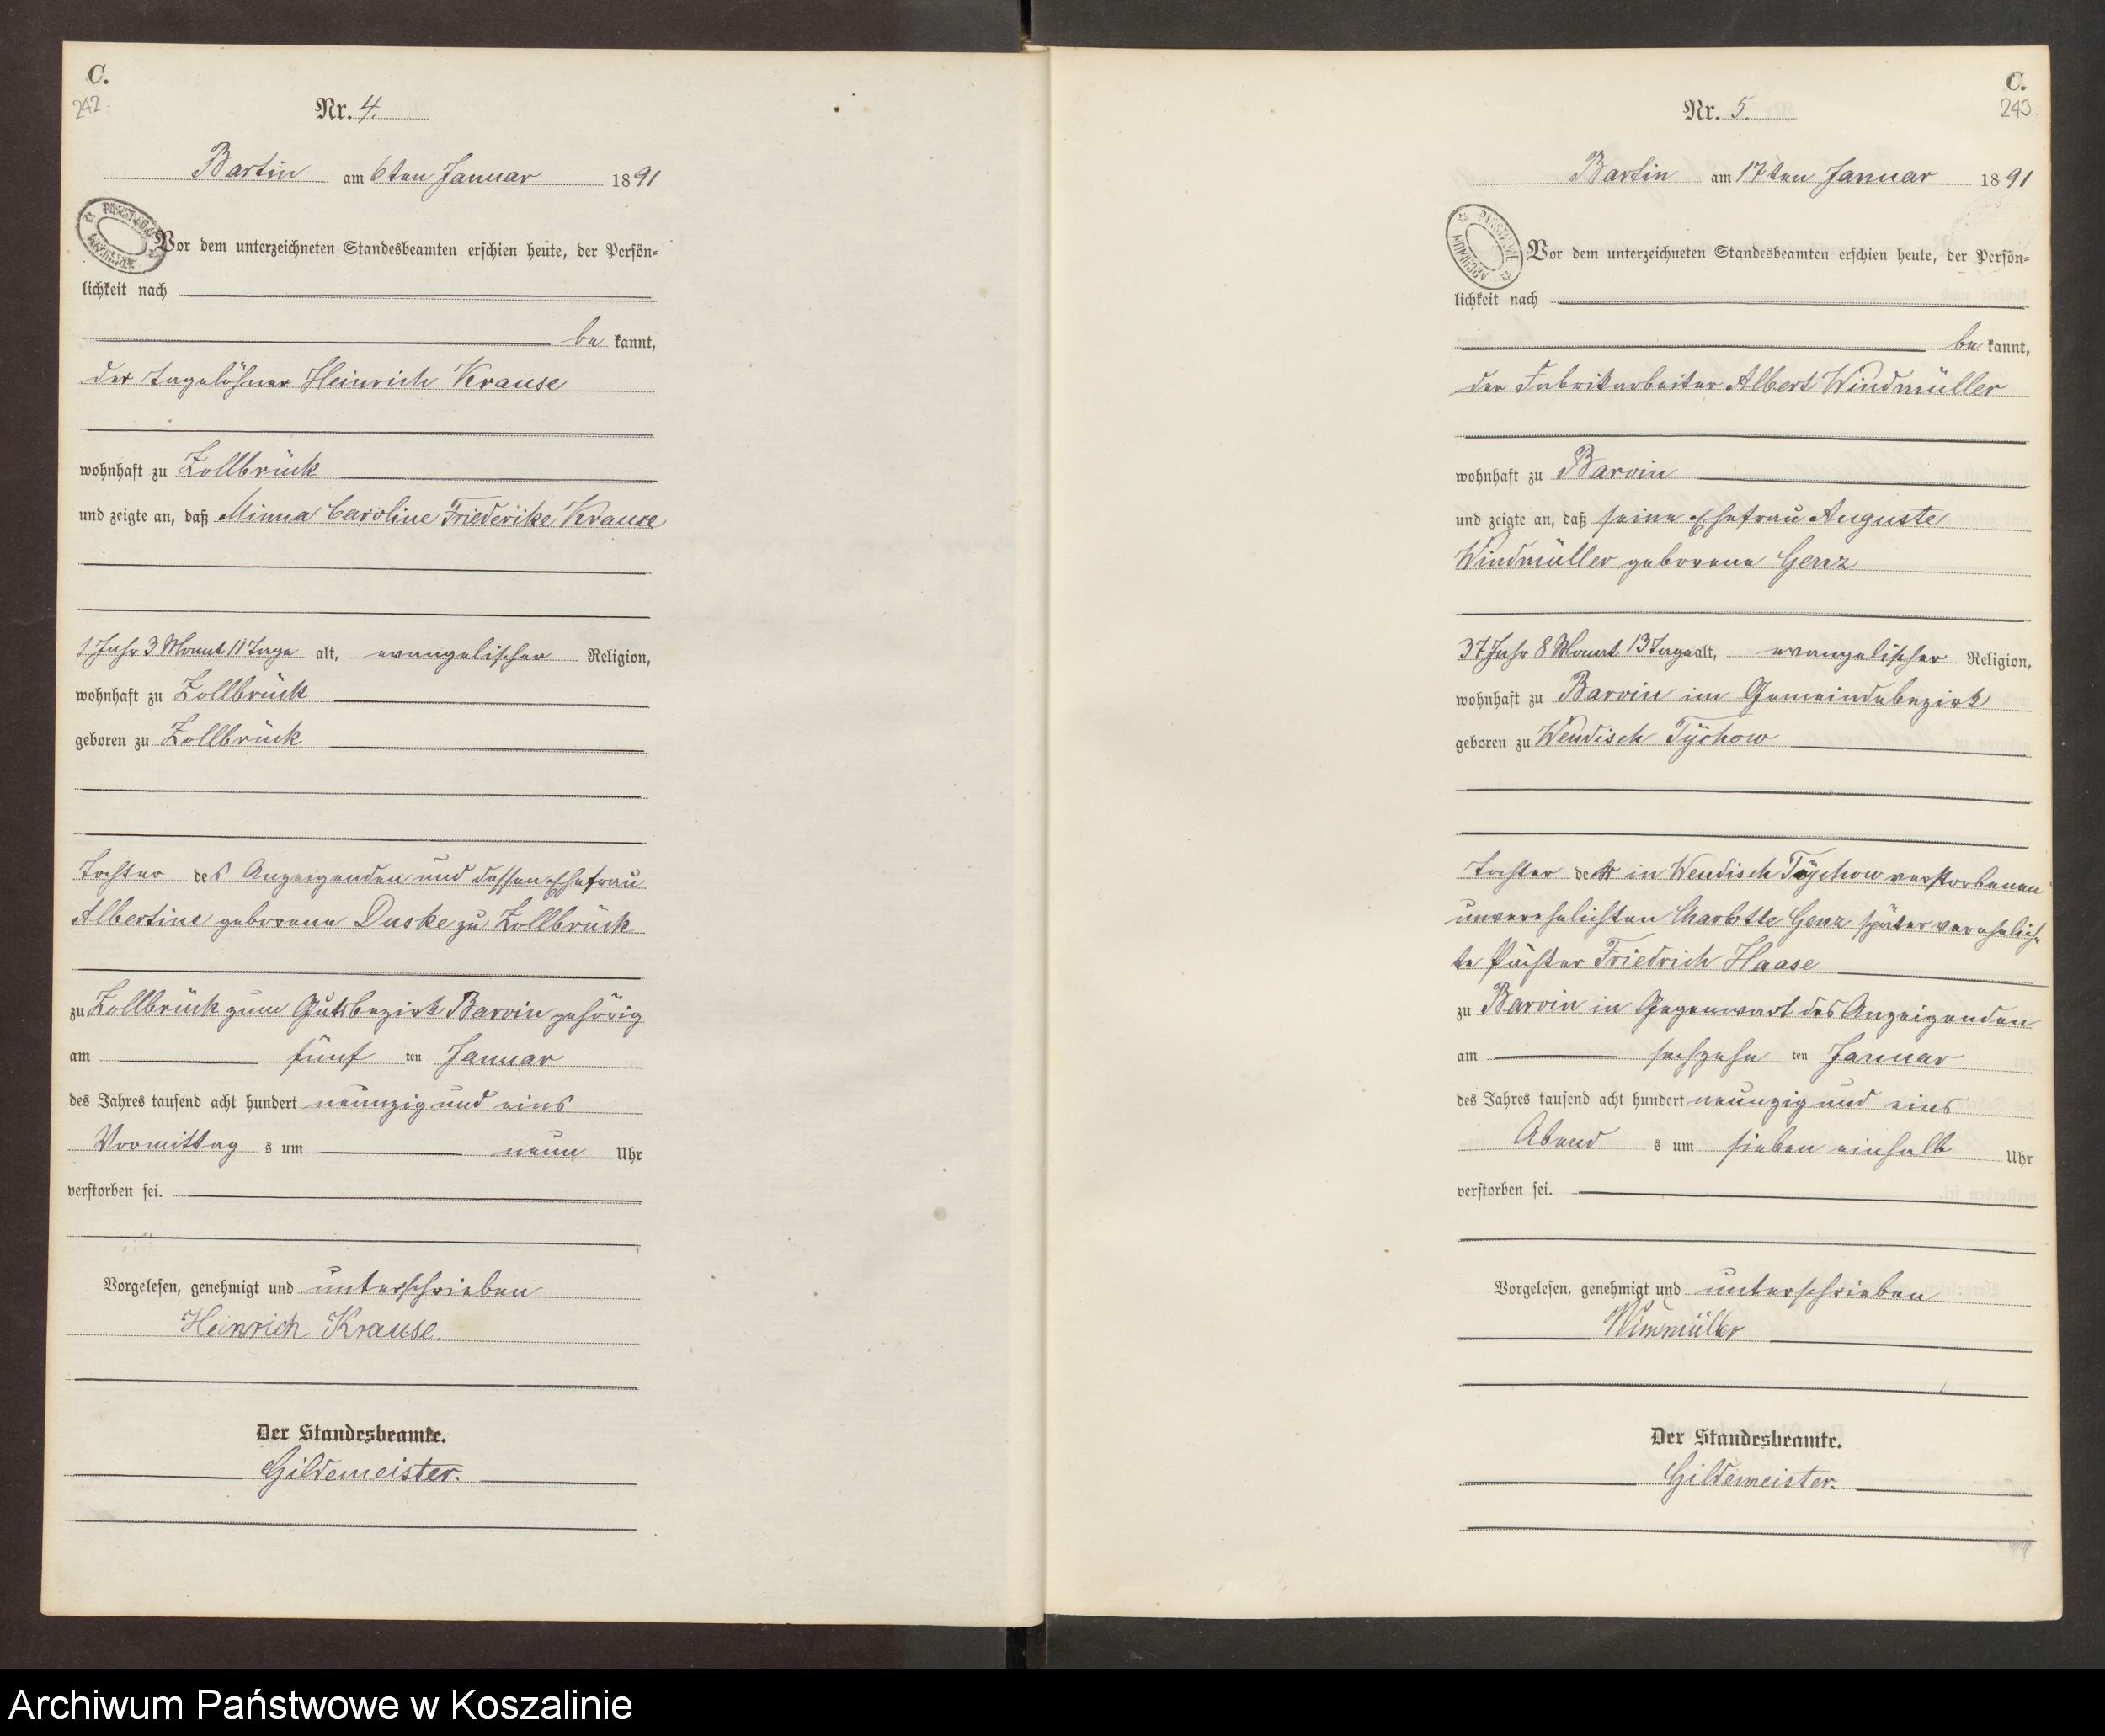 C.
242.
Nr. 4.
Bartin am 6ten Januar 1891
Vor dem unterzeichneten Standesbeamten erschien heute, der Persön-
lichkeit nach
be kannt,
der Tagelöhner Heinrich Krause
wohnhaft zu Zollbrück
und zeigte an, daß Minna Caroline Friederike Krause
1 Jahr 3 Monat 11 Tage alt, evangelischer Religion,
wohnhaft zu Zollbrück
geboren zu Zollbrück
Tochter des Anzeigenden und dessen Ehefrau
Albertine geborene Duske zu Zollbrück
zu Zollbrück zum Gutsbezirk Barvin gehörig
am fünf ten Januar
des Jahres tausend acht hundert neunzig und eins
Vormittag s um neun Uhr
verstorben sei.
Vorgelesen, genehmigt und unterschrieben
Heinrich Krause.
Der Standesbeamte.
Gildemeister.
C.
243.
Nr. 5.
Bartin am 17ten Januar 1891
PAŃSTWOWE ARCHIWUM
Vor dem unterzeichneten Standesbeamten erschien heute, der Persön-
lichkeit nach
be kannt,
der Fabrikarbeiter Albert Windmüller
wohnhaft zu Barvin
und zeigte an, daß seine Ehefrau Auguste
Windmüller geborene Genz
37 Jahr 8 Monat 13 Tage alt, evangelischer Religion,
wohnhaft zu Barvin im Gemeindebezirk
geboren zu Wendisch Tychow
Tochter der in Wendisch Tychow verstorbenen
unverehelichten Charlotte Genz später verehelich-
te Pächter Friedrich Haase
zu Barvin in Gegenwart des Anzeigenden
am sechzehn ten Januar
des Jahres tausend acht hundert neunzig und eins
Abend s um sieben einhalb Uhr
verstorben sei.
Vorgelesen, genehmigt und unterschrieben
Winmüller
Der Standesbeamte.
Gildemeister.
Archiwum Państwowe w Koszalinie